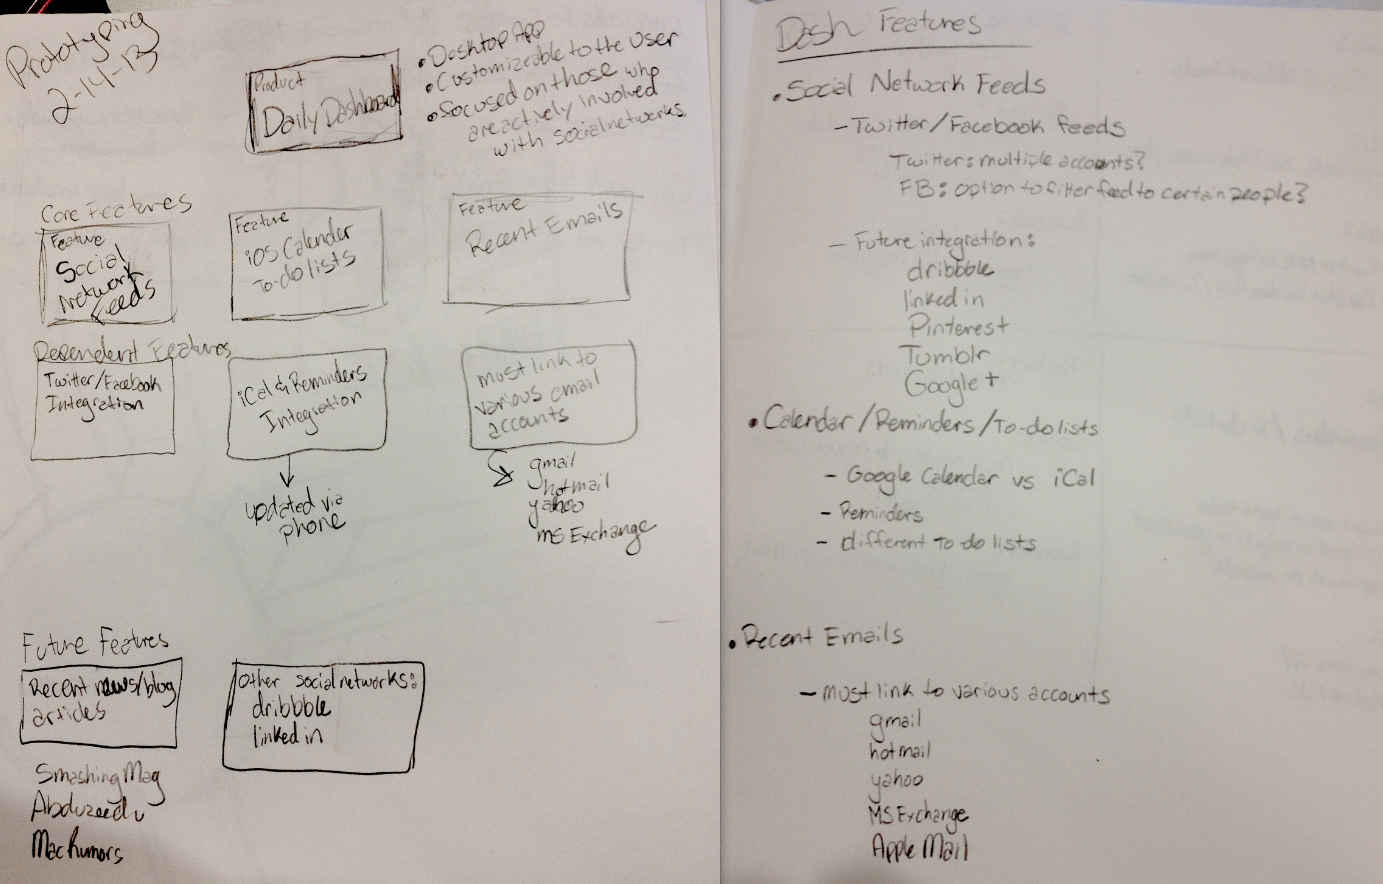 Prototyping
2-14-13
Product
Daily Dashboard
• Desktop App
• Customizeable to the User
• focused on those who
are actively involved
with social networks.
Core Features
Feature
Social
Network
Feeds
Feature
iOS Calender
To-do lists
Feature
Recent Emails
Dependent Features
Twitter/Facebook
Integration
iCal & Reminders
Integration
must link to
various email
accounts
updated via
phone
gmail
hotmail
yahoo
MS Exchange
Future Features
Recent news/blog
articles
Smashing Mag
Abduzeedo
MacRumors
Other social networks:
dribbble
linked in
Dash Features
• Social Network Feeds
- Twitter/Facebook feeds
Twitter: multiple accounts?
FB: option to filter feed to certain people?
- Future integration:
dribbble
linked in
Pinterest
Tumblr
Google +
• Calendar/Reminders/To-do lists
- Google Calendar vs iCal
- Reminders
- different To do lists
• Recent Emails
- must link to various accounts
gmail
hotmail
yahoo
MS Exchange
Apple Mail